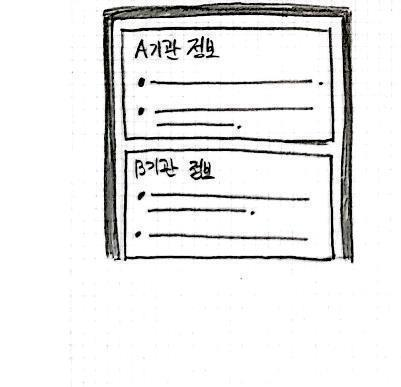 A기관 정보
B기관 정보